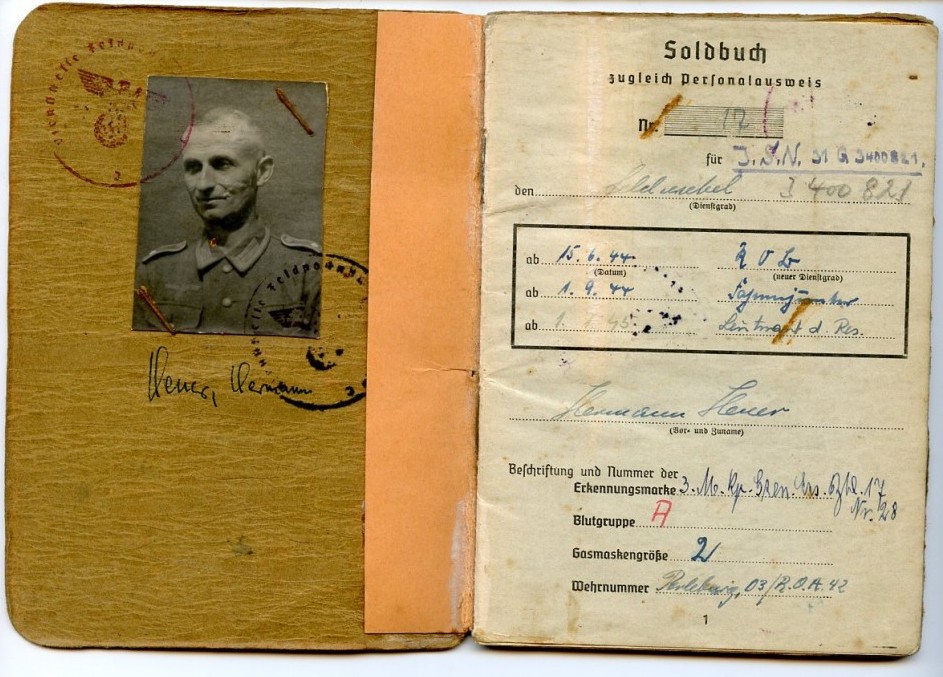 Dienststelle Feldpost
2
Heuer, Hermann
Dienststelle Feldpost
3
Soldbuch
zugleich Personalausweis
Nr. 12
für J.S.N. 31 G 3400821.
den Feldwebel 3 400 821
(Dienstgrad)
ab 15.6.44 R O B
(Datum) (neuer Dienstgrad)
ab 1.9.44 Fahnenjunker
ab 1. 45 Leutnant d. Res.
Hermann Heuer
(Vor- und Zuname)
Beschriftung und Nummer der
Erkennungsmarke 3. M. Kp. Gren. Ers. Btl. 17
Nr. 28
Blutgruppe A
Gasmaskengröße 2
Wehrnummer 03/R.O.A. 42
1